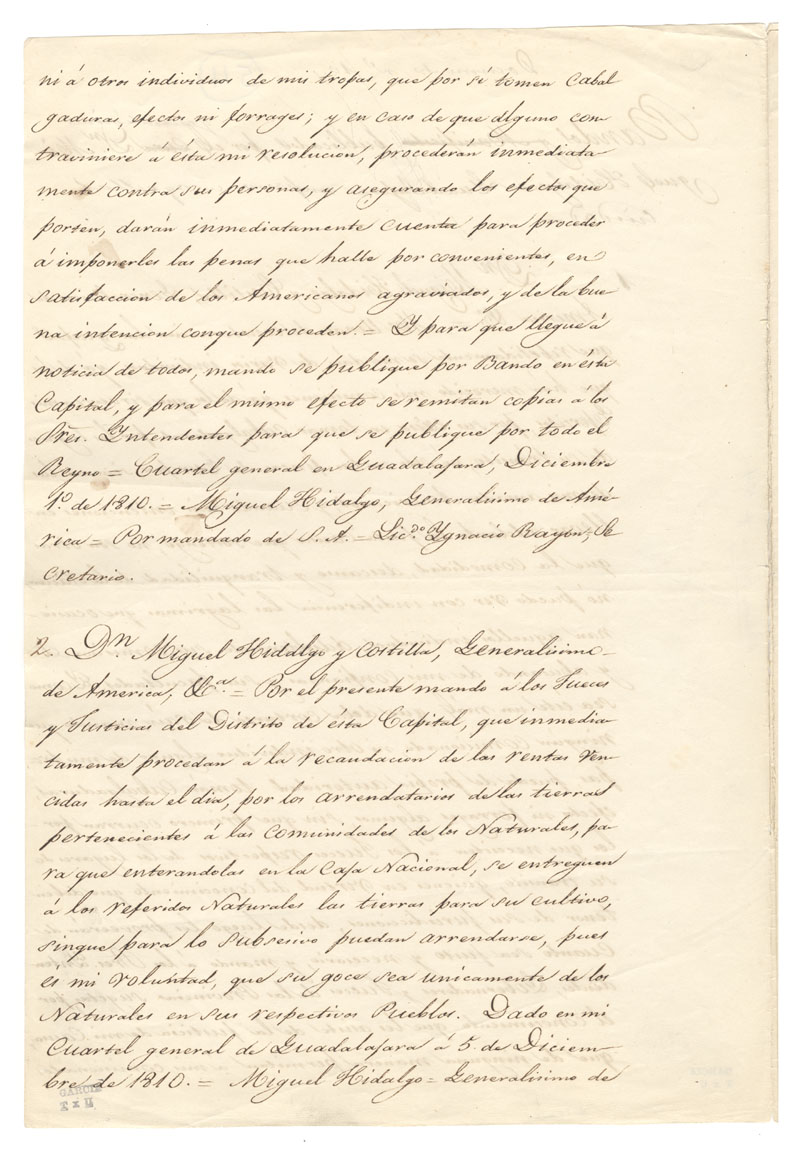 ni á otros individuos de mis tropas, que por sí tomen Cabal
gaduras, efectos ni forrages; y en caso de que alguno con
traviniere á ésta mi resolucion, procederán inmediata
mente contra sus personas, y asegurando los efectos que
porten, darán inmediatamente cuenta para proceder
á imponerles las penas que halle por convenientes, en
satisfaccion de los Americanos agraviados, y de la bue
na intencion conque proceden. = Y para que llegue á
noticia de todos, mando se publique por Bando en ésta
Capital, y para el mismo efecto se remitan copias á los
Sres. Yntendentes para que se publique por todo el
Reyno = Cuartel general en Guadalajara, Diciembre
1º de 1810. = Miguel Hidalgo, Generalisimo de Amé-
rica = Por mandado de S. A. = Lic.do Ygnacio Rayon, Se
cretario.
2. Dn Miguel Hidalgo y Costilla, Generalisimo
de America, &a. = Por el presente mando á los Jueces
y Justicias del Distrito de ésta Capital, que inmedia-
tamente procedan á la recaudacion de las rentas ven-
cidas hasta el dia, por los arrendatarios de las tierras
pertenecientes á las Comunidades de los Naturales, pa-
ra que enterandolas en la Caja Nacional, se entreguen
á los referidos Naturales las tierras para su cultivo,
sinque para lo subsesivo puedan arrendarse, pues
és mi voluntad, que su goce sea unicamente de los
Naturales en sus respectivos Pueblos. Dado en mi
Cuartel general de Guadalajara á 5 de Diciem-
bre de 1810. = Miguel Hidalgo = Generalisimo de
GARCIA